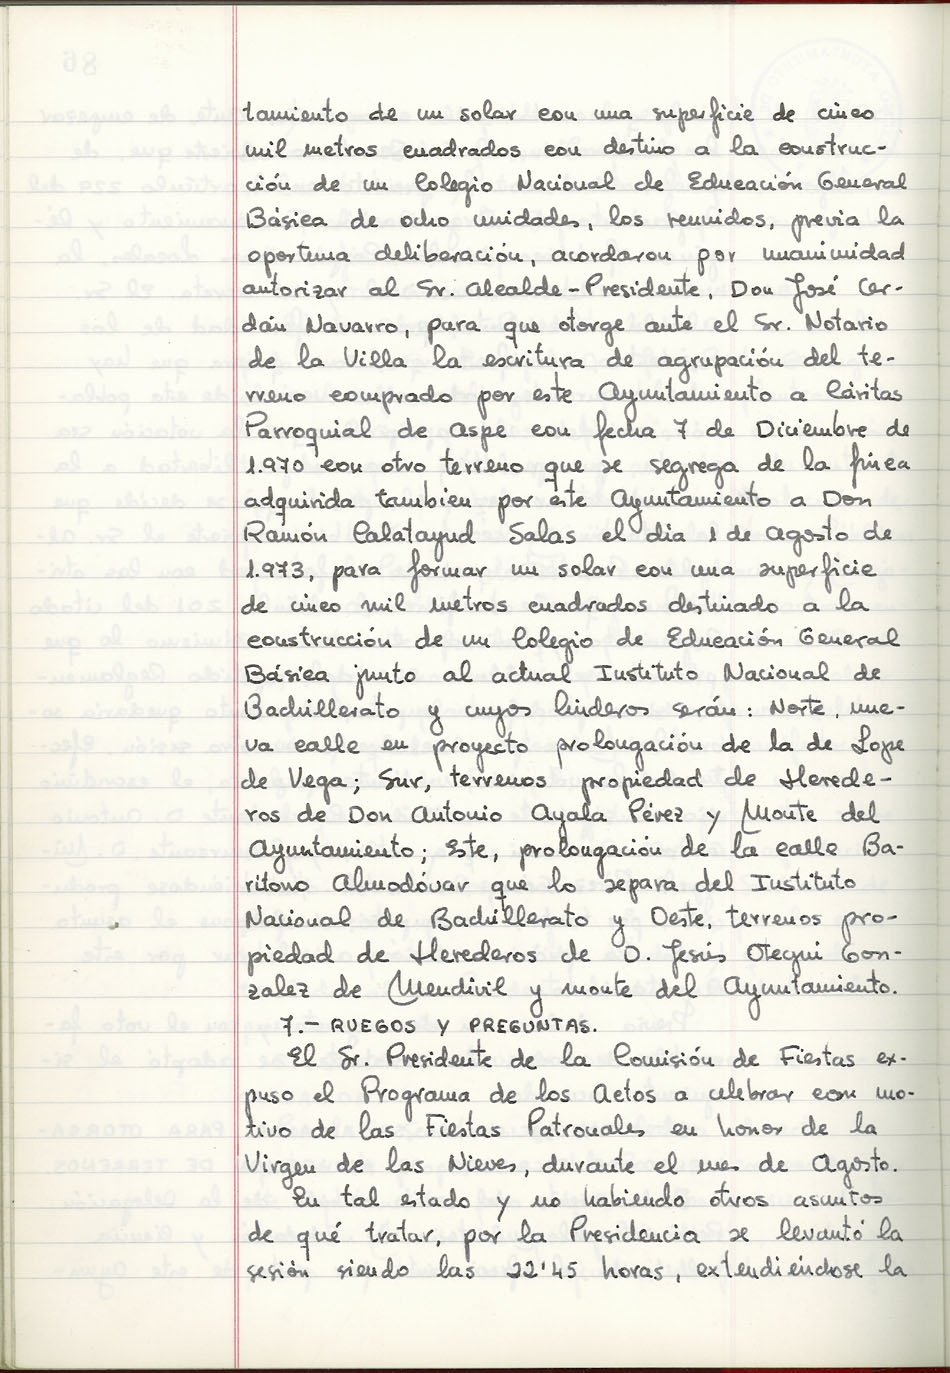 tamiento de un solar con una superficie de cinco
mil metros cuadrados con destino a la construc-
ción de un Colegio Nacional de Educación General
Básica de ocho unidades, los reunidos, previa la
oportuna deliberación, acordaron por unanimidad
autorizar al Sr. Alcalde-Presidente, Don José Cer-
dán Navarro, para que otorge ante el Sr. Notario
de la Villa la escritura de agrupación del te-
rreno comprado por este Ayuntamiento a Cáritas
Parroquial de Aspe con fecha 7 de Diciembre de
1.970 con otro terreno que se segrega de la finca
adquirida tambien por éste Ayuntamiento a Don
Ramón Calatayud Salas el dia 1 de Agosto de
1.973, para formar un solar con una superficie
de cinco mil metros cuadrados destinado a la
construcción de un Colegio de Educación General
Básica junto al actual Instituto Nacional de
Bachillerato y cuyos linderos serán: Norte, nue-
va calle en proyecto prolongación de la de Lope
de Vega; Sur, terrenos propiedad de Herede-
ros de Don Antonio Ayala Pérez y Monte del
Ayuntamiento; Este, prolongación de la calle Ba-
rítono Almodóvar que lo separa del Instituto
Nacional de Bachillerato y Oeste, terrenos pro-
piedad de Herederos de D. Jesús Otegui Gon-
zalez de Mendivil y monte del Ayuntamiento.
7.- RUEGOS Y PREGUNTAS.
El Sr. Presidente de la Comisión de Fiestas ex-
puso el Programa de los Actos a celebrar con mo-
tivo de las Fiestas Patronales en honor de la
Virgen de las Nieves, durante el mes de Agosto.
En tal estado y no habiendo otros asuntos
de qué tratar, por la Presidencia se levantó la
sesión siendo las 22'45 horas, extendiéndose la